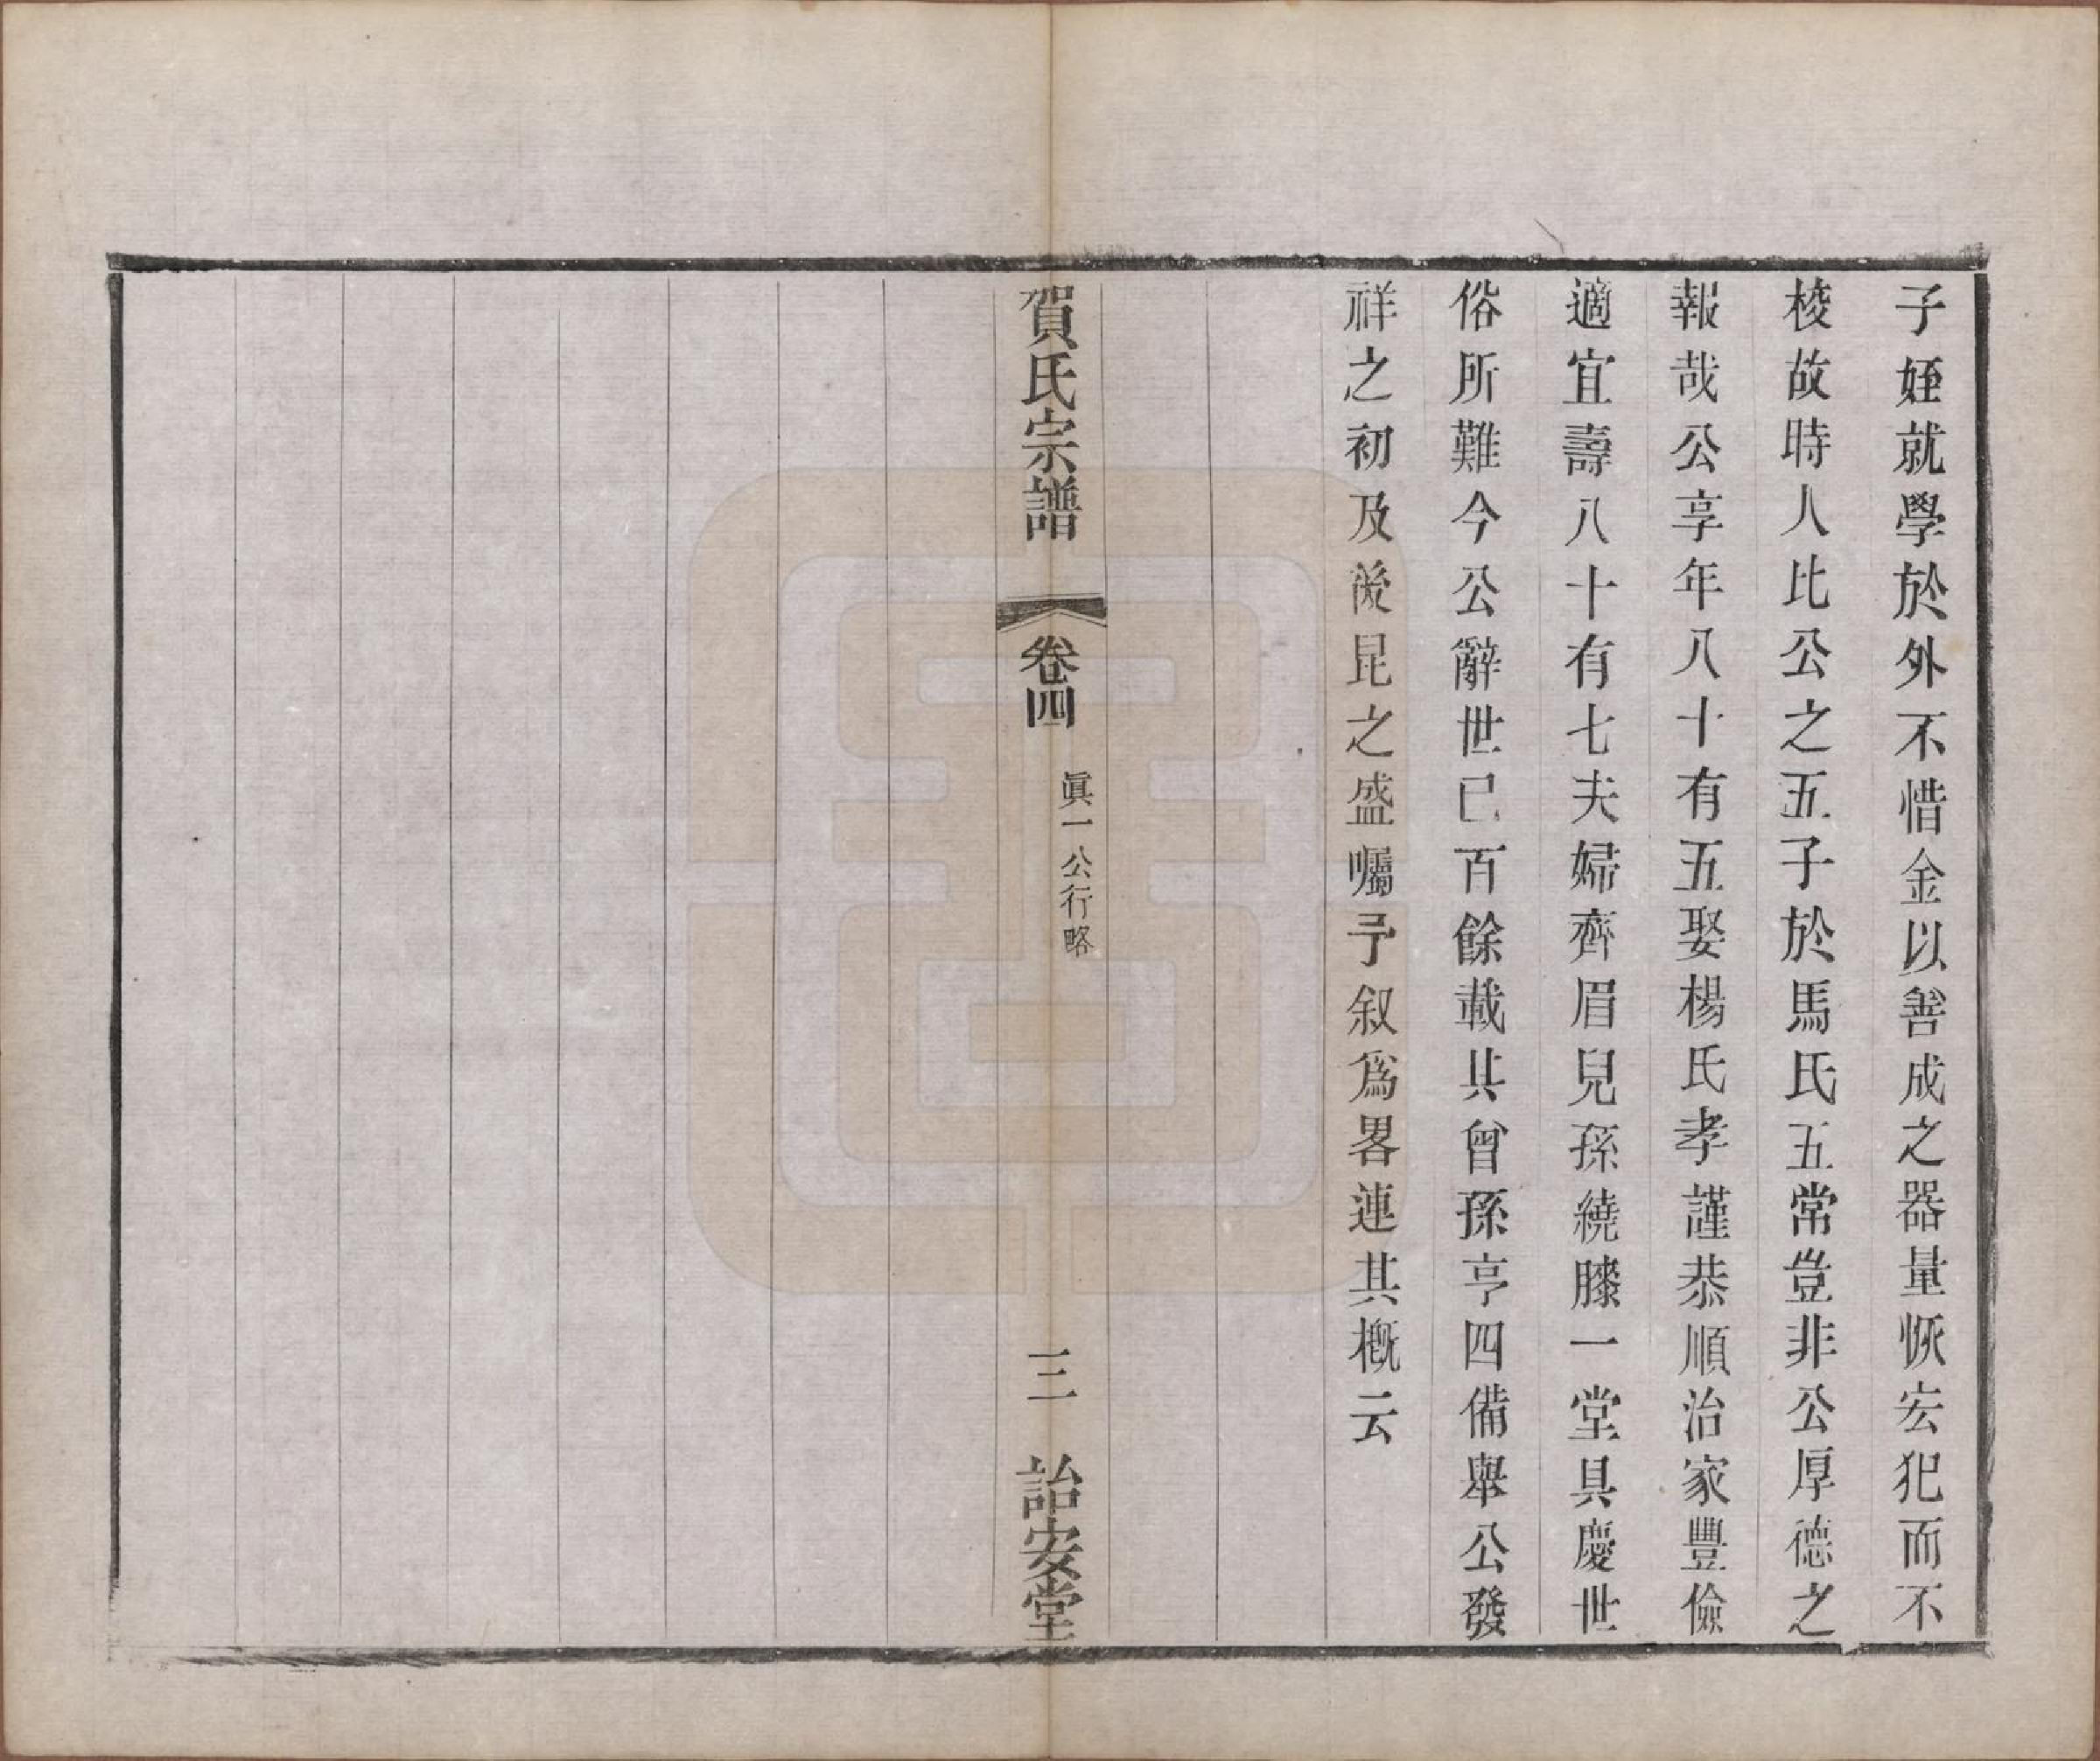 子姪就學於外不惜金以善成之器量恢宏犯而不
棱故時人比公之五子於馬氏五常豈非公厚德之
報哉公享年八十有五娶楊氏孝謹恭順治家豐儉
適宜壽八十有七夫婦齊眉兒孫繞膝一堂具慶世
俗所難今公辭世已百餘載其曾孫亨四備舉公發
祥之初及後昆之盛囑予叙爲畧連其概云
賀氏宗譜
卷四
眞一公行略
三
詒安堂